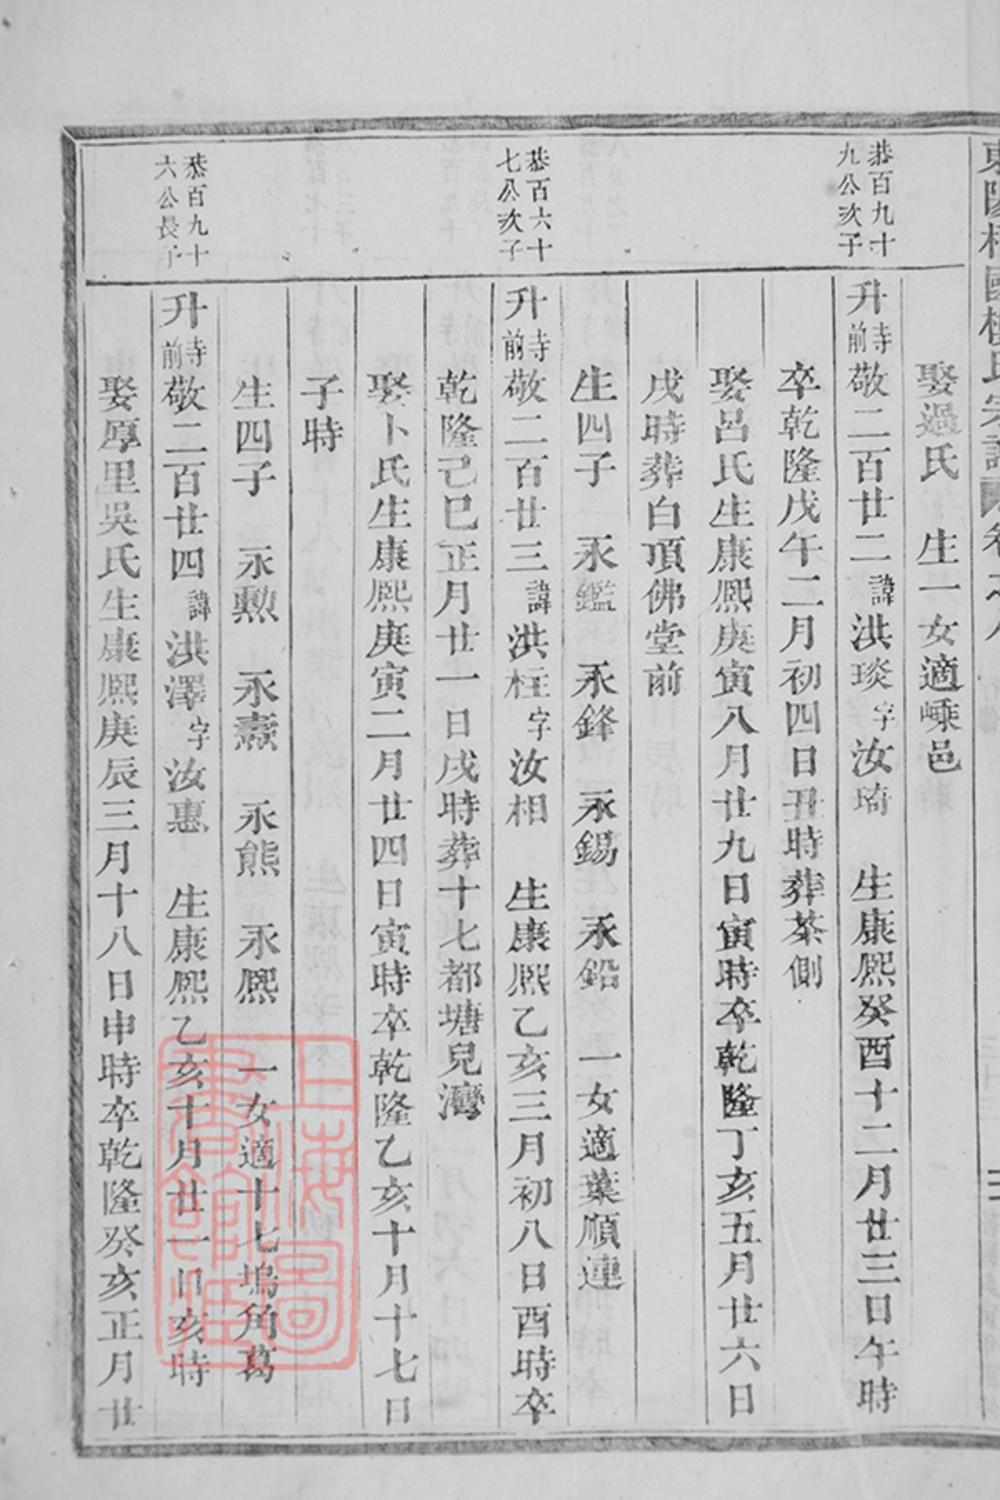 娶過氏　生一女適嵊邑
恭百九十九公次子
升寺前敬二百廿二諱洪琰字汝琦　生康熙癸酉十二月廿三日午時
卒乾隆戊午二月初四日丑時葬茶側
娶呂氏生康熙庚寅八月廿九日寅時卒乾隆丁亥五月廿六日
戌時葬白頂佛堂前
生四子　永鑑　永鋒　永錫　永鉛　一女適葉順連
恭百六十七公次子
升寺前敬二百廿三諱洪柱字汝相　生康熙乙亥三月初八日酉時卒
乾隆己巳正月廿一日戌時葬十七都塘兒灣
娶卜氏生康熙庚寅二月廿四日寅時卒乾隆乙亥十月十七日
子時
生四子　永勲　永燾　永熊　永熙　一女適十七塢角葛
恭百九十六公長子
升寺前敬二百廿四諱洪澤字汝惠　生康熙乙亥十月廿一日亥時
娶厚里吳氏生康熙庚辰三月十八日申時卒乾隆癸亥正月廿
上海圖書館藏